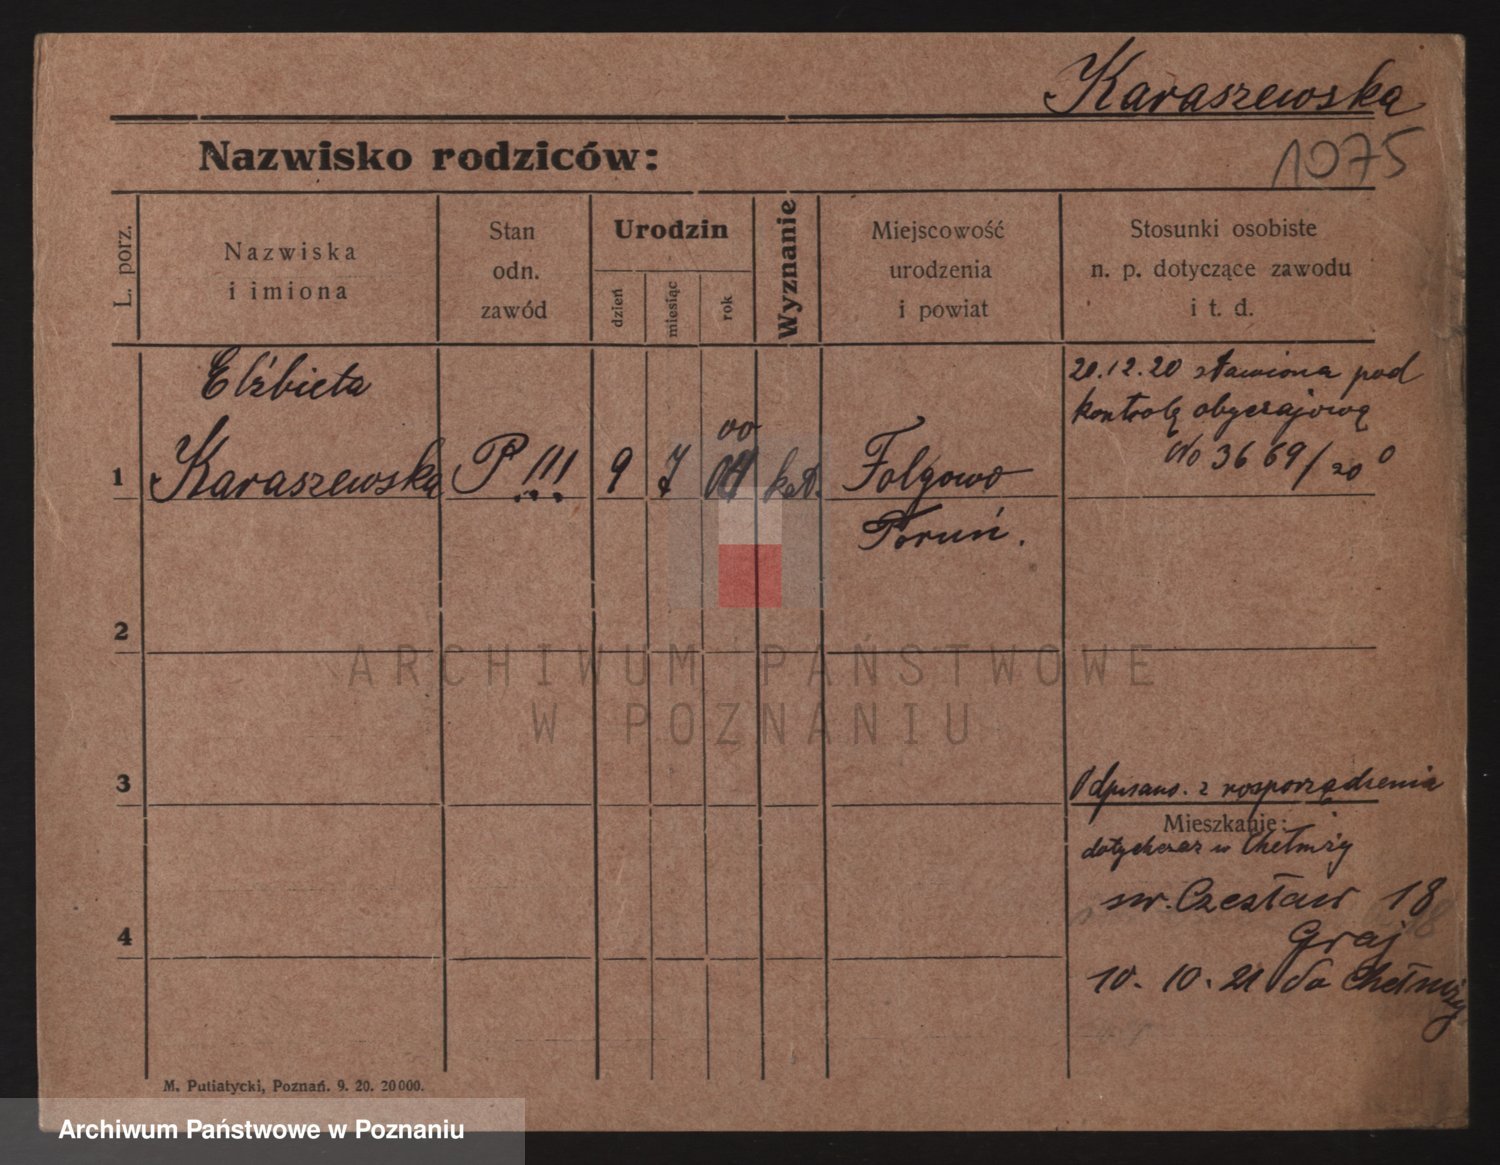 Karaszewska
Nazwisko rodziców:
1075
L. porz.
Nazwiska
i imiona
Stan
odn.
zawód
Urodzin
dzień
miesiąc
rok
Wyznanie
Miejscowość
urodzenia
i powiat
Stosunki osobiste
n. p. dotyczące zawodu
i t. d.
Elżbieta
20.12.20 stawiona pod
kontrolę obyczajową
No 3669/20
00
1 Karaszewska P!!! 9 7 kat. Folgowo
Toruń.
2
ARCHIWUM PAŃSTWOWE
W POZNANIU
3
Odpisano. z rosporządzenia
Mieszkanie:
dotychczas w Chełmży
św. Czesław 18
4
Graj
10. 10. 21 do Chełmży
M. Putiatycki, Poznań. 9. 20. 20000.
Archiwum Państwowe w Poznaniu